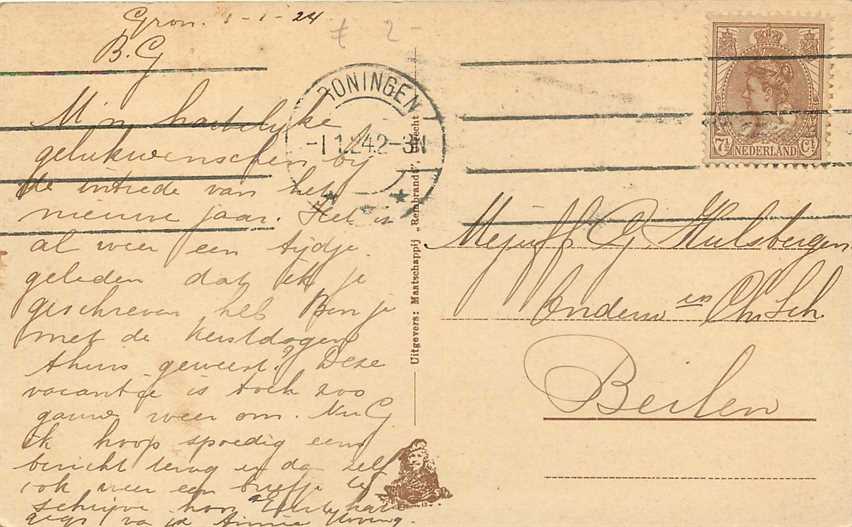 Gron. 1-1-24
B. G
M'n hartelijke
gelukwenschen bij
de intrede van het
nieuwe jaar. Het is
al weer een tijdje
geleden dat ik je
geschreven heb Ben je
met de kerstdagen
thuis geweest? Deze
vacantje is toch zoo
gauw weer om. Nu G
ik hoop spoedig eens
bericht terug en dan zelf
ook weer een briefje te
schrijve hoor
van je Annie
£ 2-
GRONINGEN
-1 1.24 2-3N
NEDERLAND
7½ Ct
Uitgevers: Maatschappij „Rembrandt", Utrecht
Mejuff. G. Hulsbergen
Onderw. Chr. Sch.
Beilen